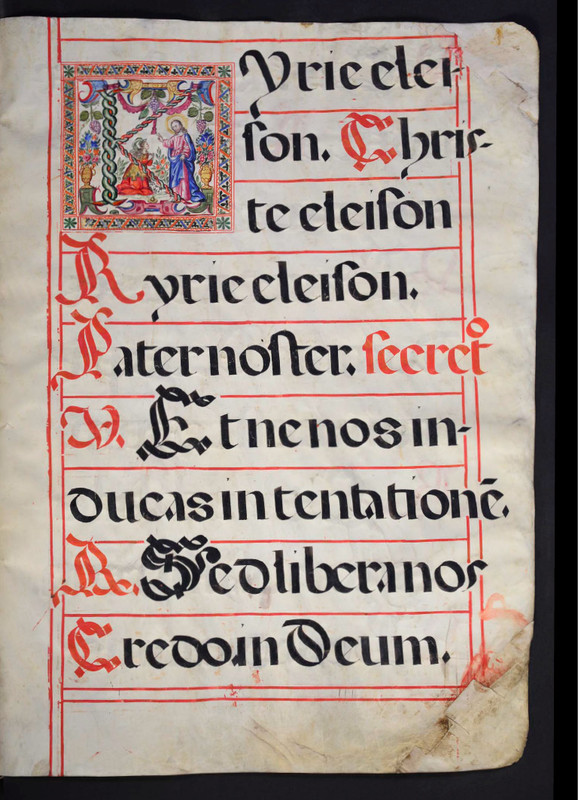 Kyrie elei-
ſon. Chriſ-
te eleiſon
Kyrie eleiſon.
Pater noſter. ſecretº
V. Et ne nos in-
ducas in tentationē.
R. Sed libera nos
Credo in Deum.